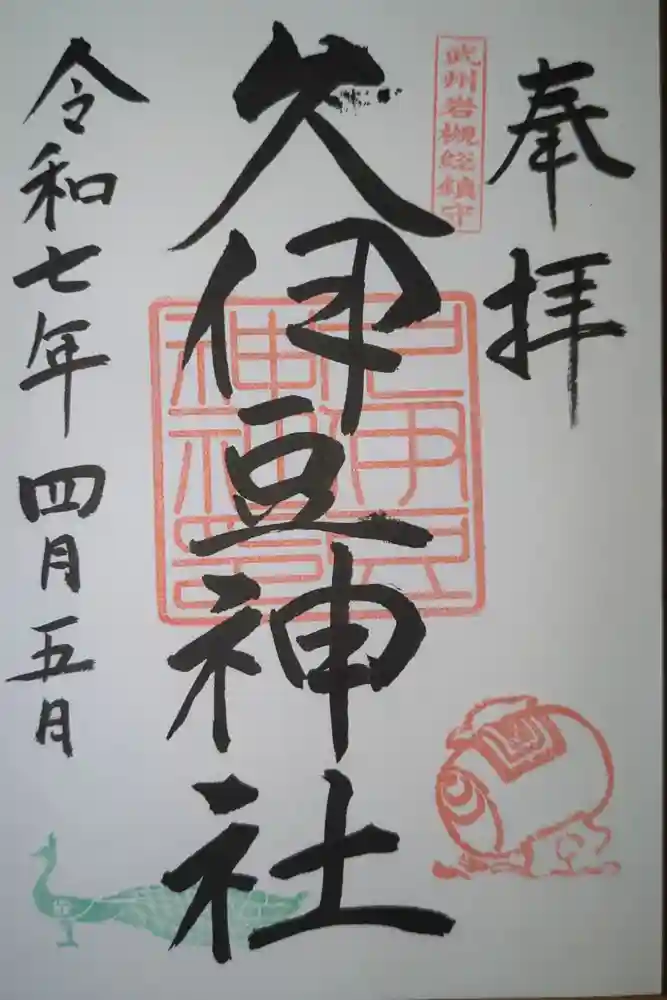 奉拝
武州岩槻総鎮守
久伊豆神社
久伊豆
神社印
令和七年四月五月